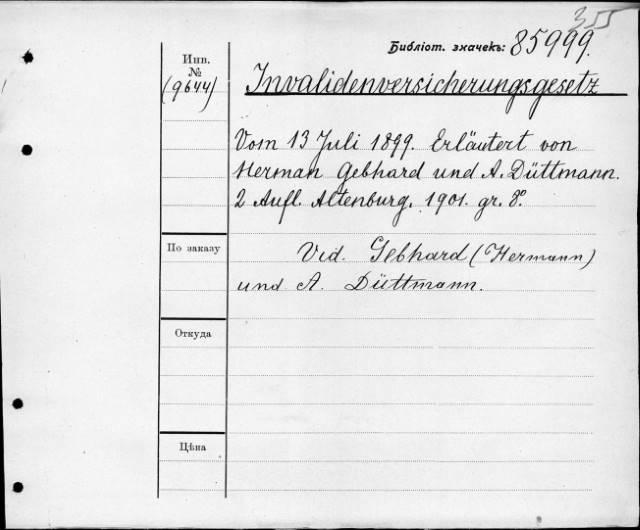 355
Библіот. значекъ: 85999.
Инв.
№
(9644)
Invalidenversicherungsgesetz
Vom 13 Juli 1899. Erläutert von
Herman Gebhard und A. Düttmann.
2 Aufl. Altenburg. 1901. gr. 8º
По заказу
Vid. Gebhard (Hermann)
und A. Düttmann.
Откуда
Цѣна